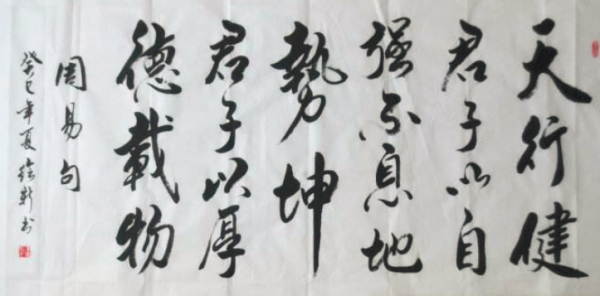 天行健
君子以自
强不息地
势坤
君子以厚
德载物
周易句
癸巳年夏 书